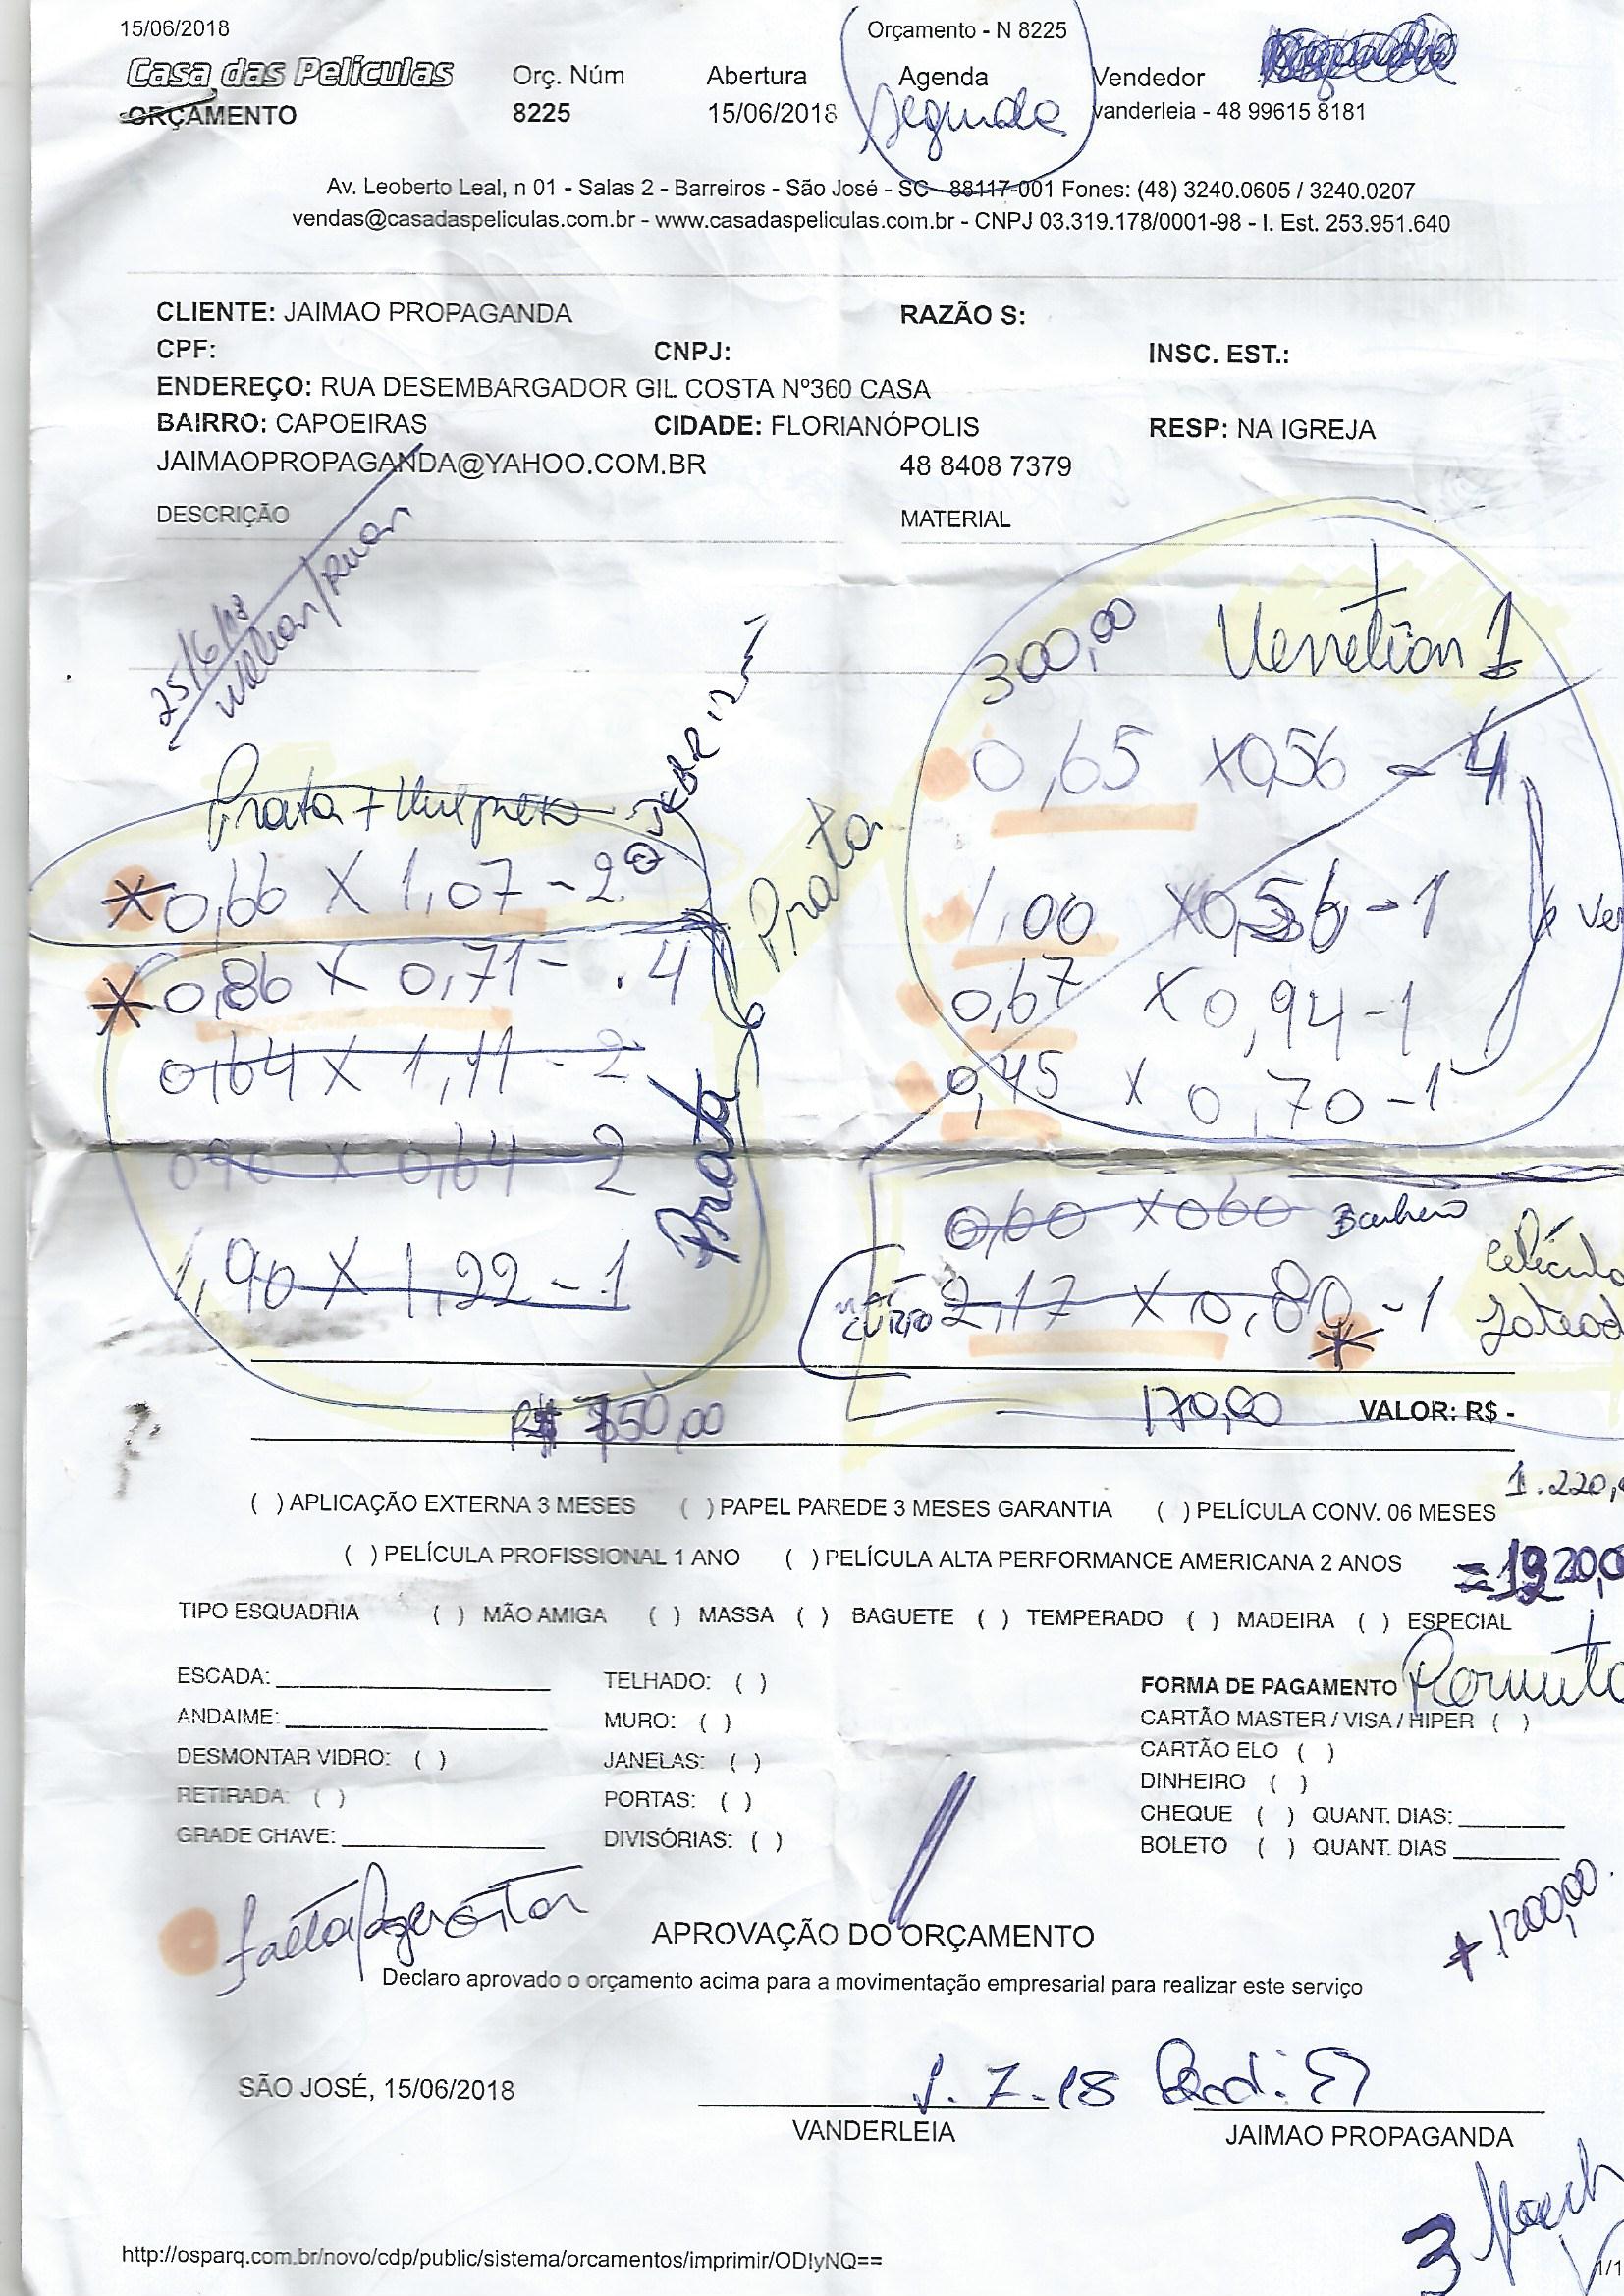 15/06/2018 Orçamento - N 8225
Casa das Películas Orç. Núm Abertura Agenda Vendedor
ORÇAMENTO 8225 15/06/2018 Segunda vanderleia - 48 99615 8181
Av. Leoberto Leal, n 01 - Salas 2 - Barreiros - São José - SC - 88117-001 Fones: (48) 3240.0605 / 3240.0207
vendas@casadaspeliculas.com.br - www.casadaspeliculas.com.br - CNPJ 03.319.178/0001-98 - I. Est. 253.951.640
CLIENTE: JAIMAO PROPAGANDA RAZÃO S:
CPF: CNPJ: INSC. EST.:
ENDEREÇO: RUA DESEMBARGADOR GIL COSTA Nº360 CASA
BAIRRO: CAPOEIRAS CIDADE: FLORIANÓPOLIS RESP: NA IGREJA
JAIMAOPROPAGANDA@YAHOO.COM.BR 48 8408 7379
DESCRIÇÃO MATERIAL
25/6/18
300,00 Venetian 1
0,65 x 0,56 - 4
Prata +
*0,66 X 1,07 - 2
Prata
1,00 x 0,56 - 1
*0,86 X 0,71 - 4
0,67 x 0,94 - 1
0,64 X 1,11 - 2
0,45 x 0,70 - 1
X 0,64 2
Prata
0,60 x 0,60 Banheiro
1,90 X 1,22 - 1
2,17 x 0,80 - 1
R$ 750,00 170,00 VALOR: R$ -
1.220,
( ) APLICAÇÃO EXTERNA 3 MESES ( ) PAPEL PAREDE 3 MESES GARANTIA ( ) PELÍCULA CONV. 06 MESES
( ) PELÍCULA PROFISSIONAL 1 ANO ( ) PELÍCULA ALTA PERFORMANCE AMERICANA 2 ANOS
TIPO ESQUADRIA ( ) MÃO AMIGA ( ) MASSA ( ) BAGUETE ( ) TEMPERADO ( ) MADEIRA ( ) ESPECIAL
ESCADA: TELHADO: ( ) FORMA DE PAGAMENTO Permuta
ANDAIME: MURO: ( ) CARTÃO MASTER / VISA / HIPER ( )
DESMONTAR VIDRO: ( ) JANELAS: ( ) CARTÃO ELO ( )
RETIRADA: ( ) PORTAS: ( ) DINHEIRO ( )
GRADE CHAVE: DIVISÓRIAS: ( ) CHEQUE ( ) QUANT. DIAS:
BOLETO ( ) QUANT. DIAS
+ 1200,00
APROVAÇÃO DO ORÇAMENTO
Declaro aprovado o orçamento acima para a movimentação empresarial para realizar este serviço
SÃO JOSÉ, 15/06/2018
VANDERLEIA JAIMAO PROPAGANDA
3
http://osparq.com.br/novo/cdp/public/sistema/orcamentos/imprimir/ODIyNQ== 1/1